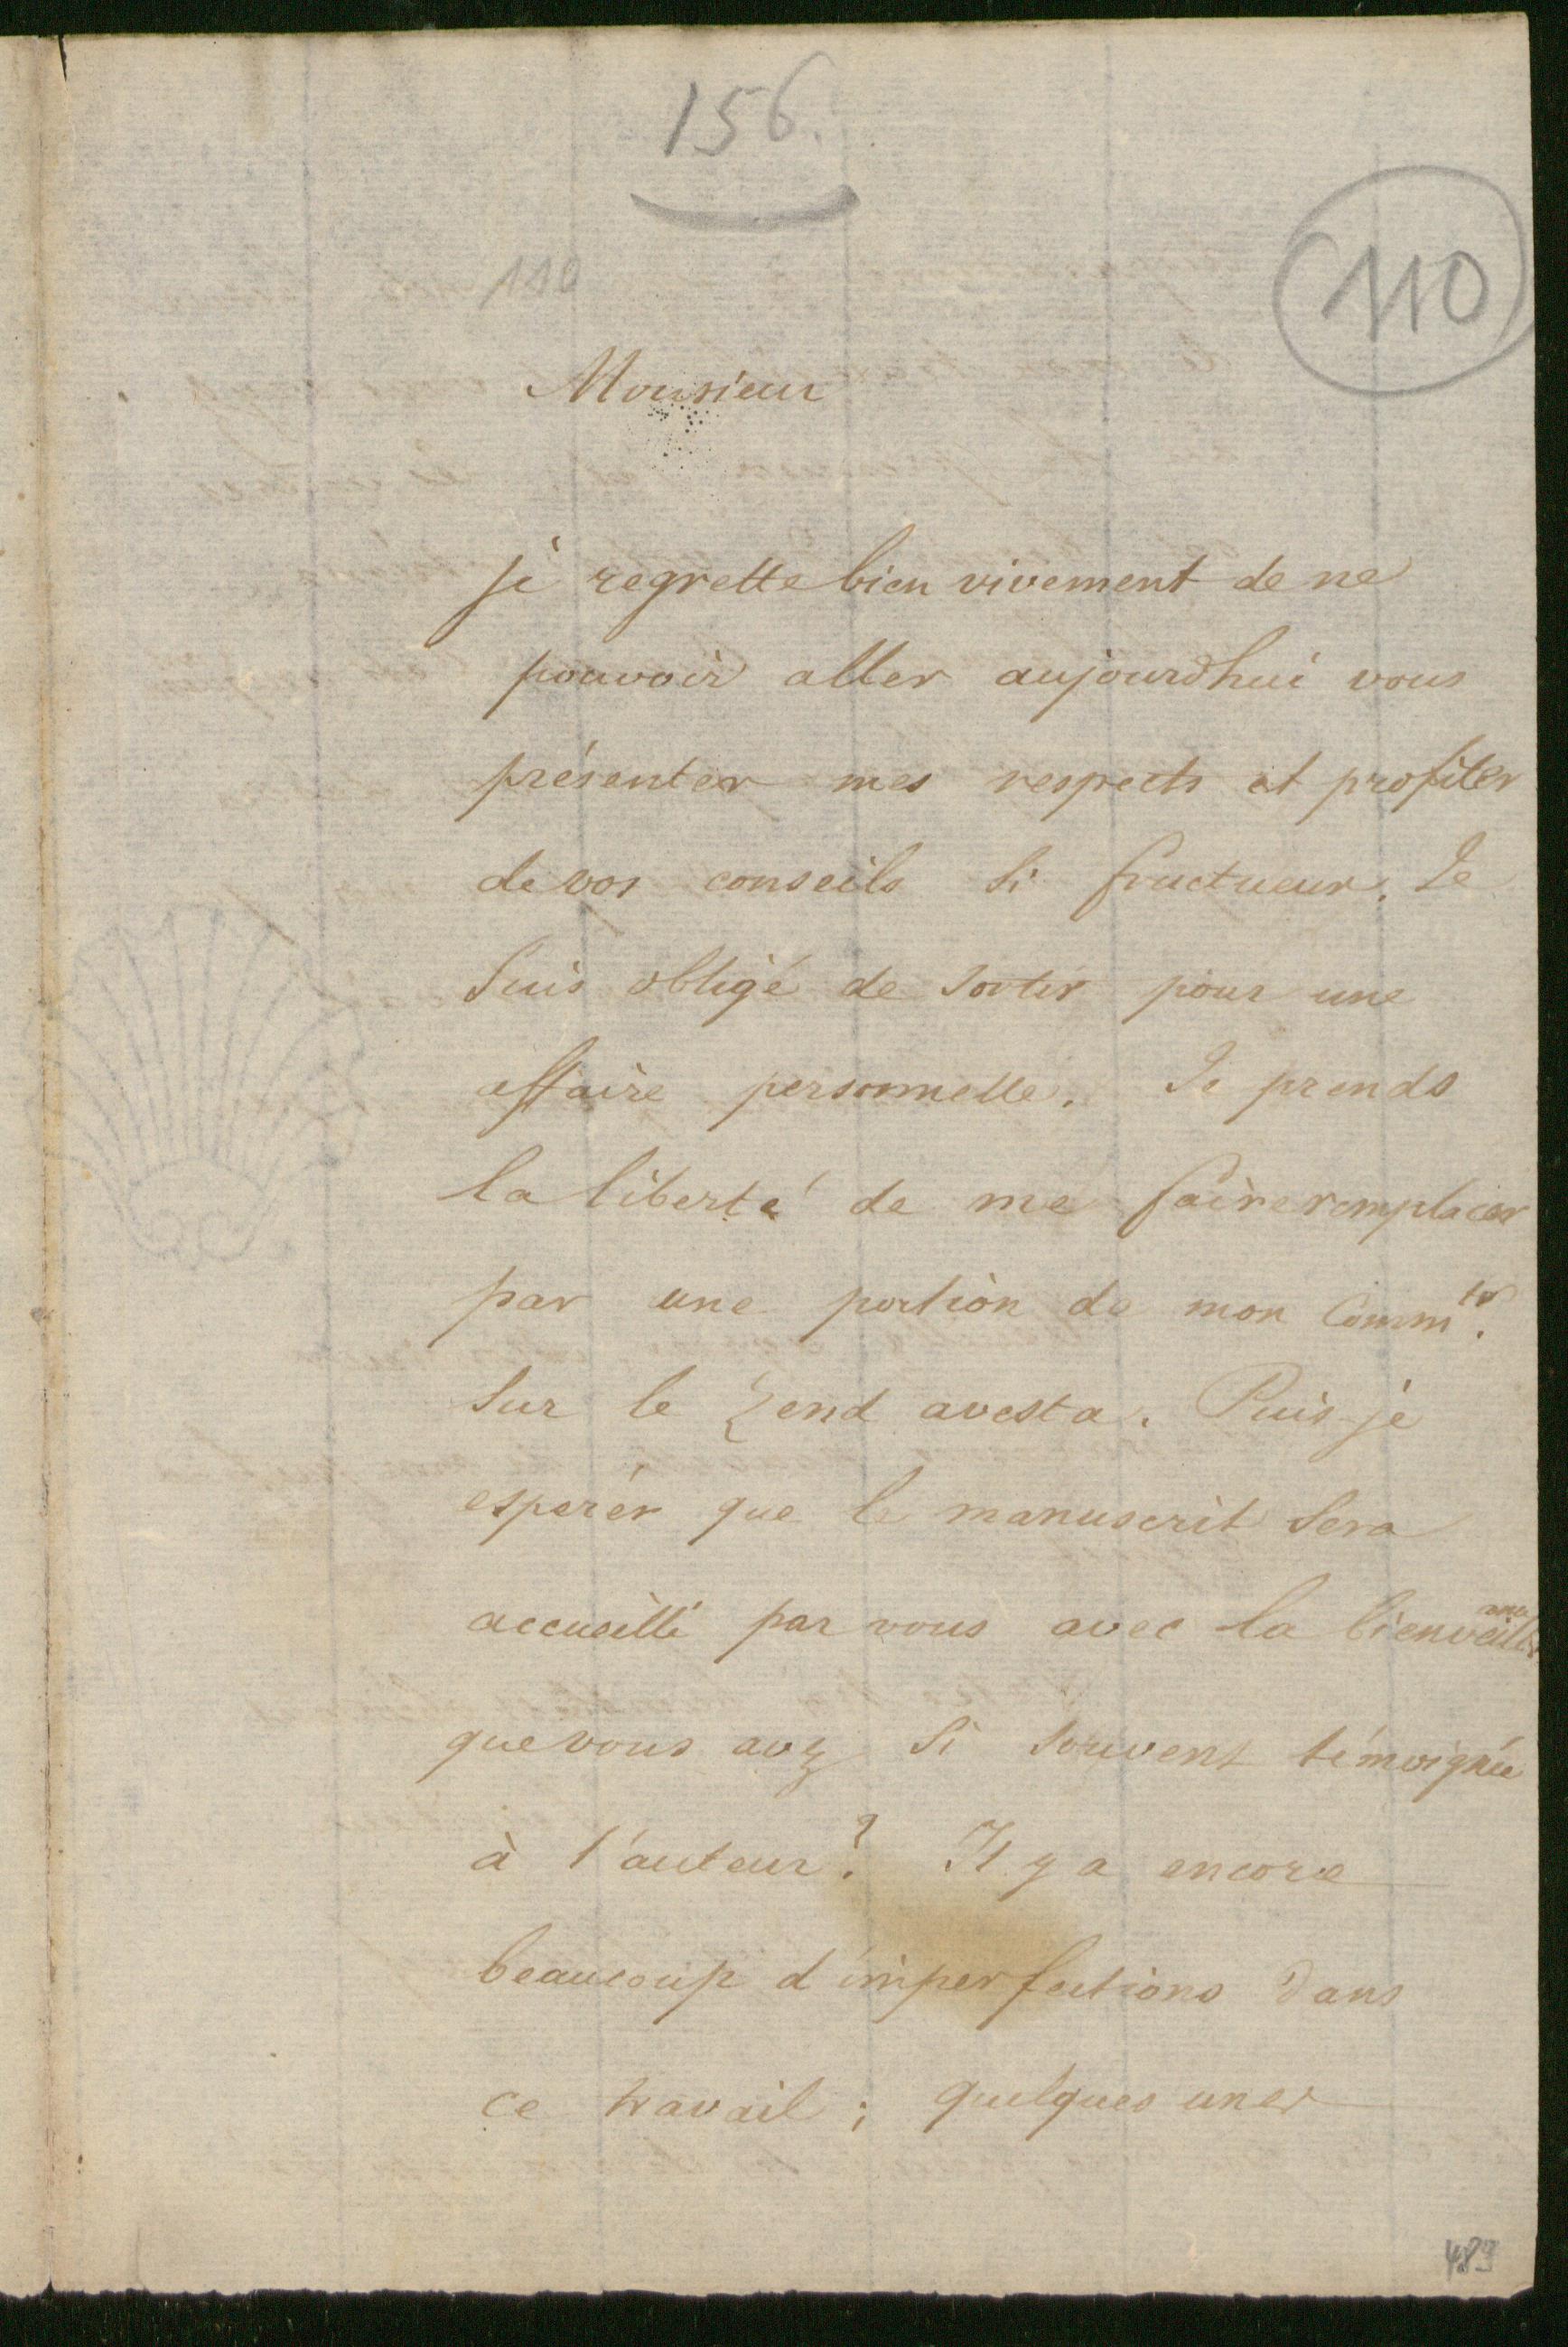 156.
110
110
Monsieur
je regrette bien vivement de ne
pouvoir aller aujourdhui vous
présenter mes respects et profiter
de vos conseils si fructueux. Je
suis obligé de sortir pour une
affaire personnelle. Je prends
la liberté de me faire remplacer
par une portion de mon Comm^re.
sur le Zend avesta. Puis-je
espérer que le manuscrit sera
accueilli par vous avec la bienveillance
que vous avez si souvent témoignée
à l'auteur? Il y a encore
beaucoup d'imperfections dans
ce travail; quelques unes
483